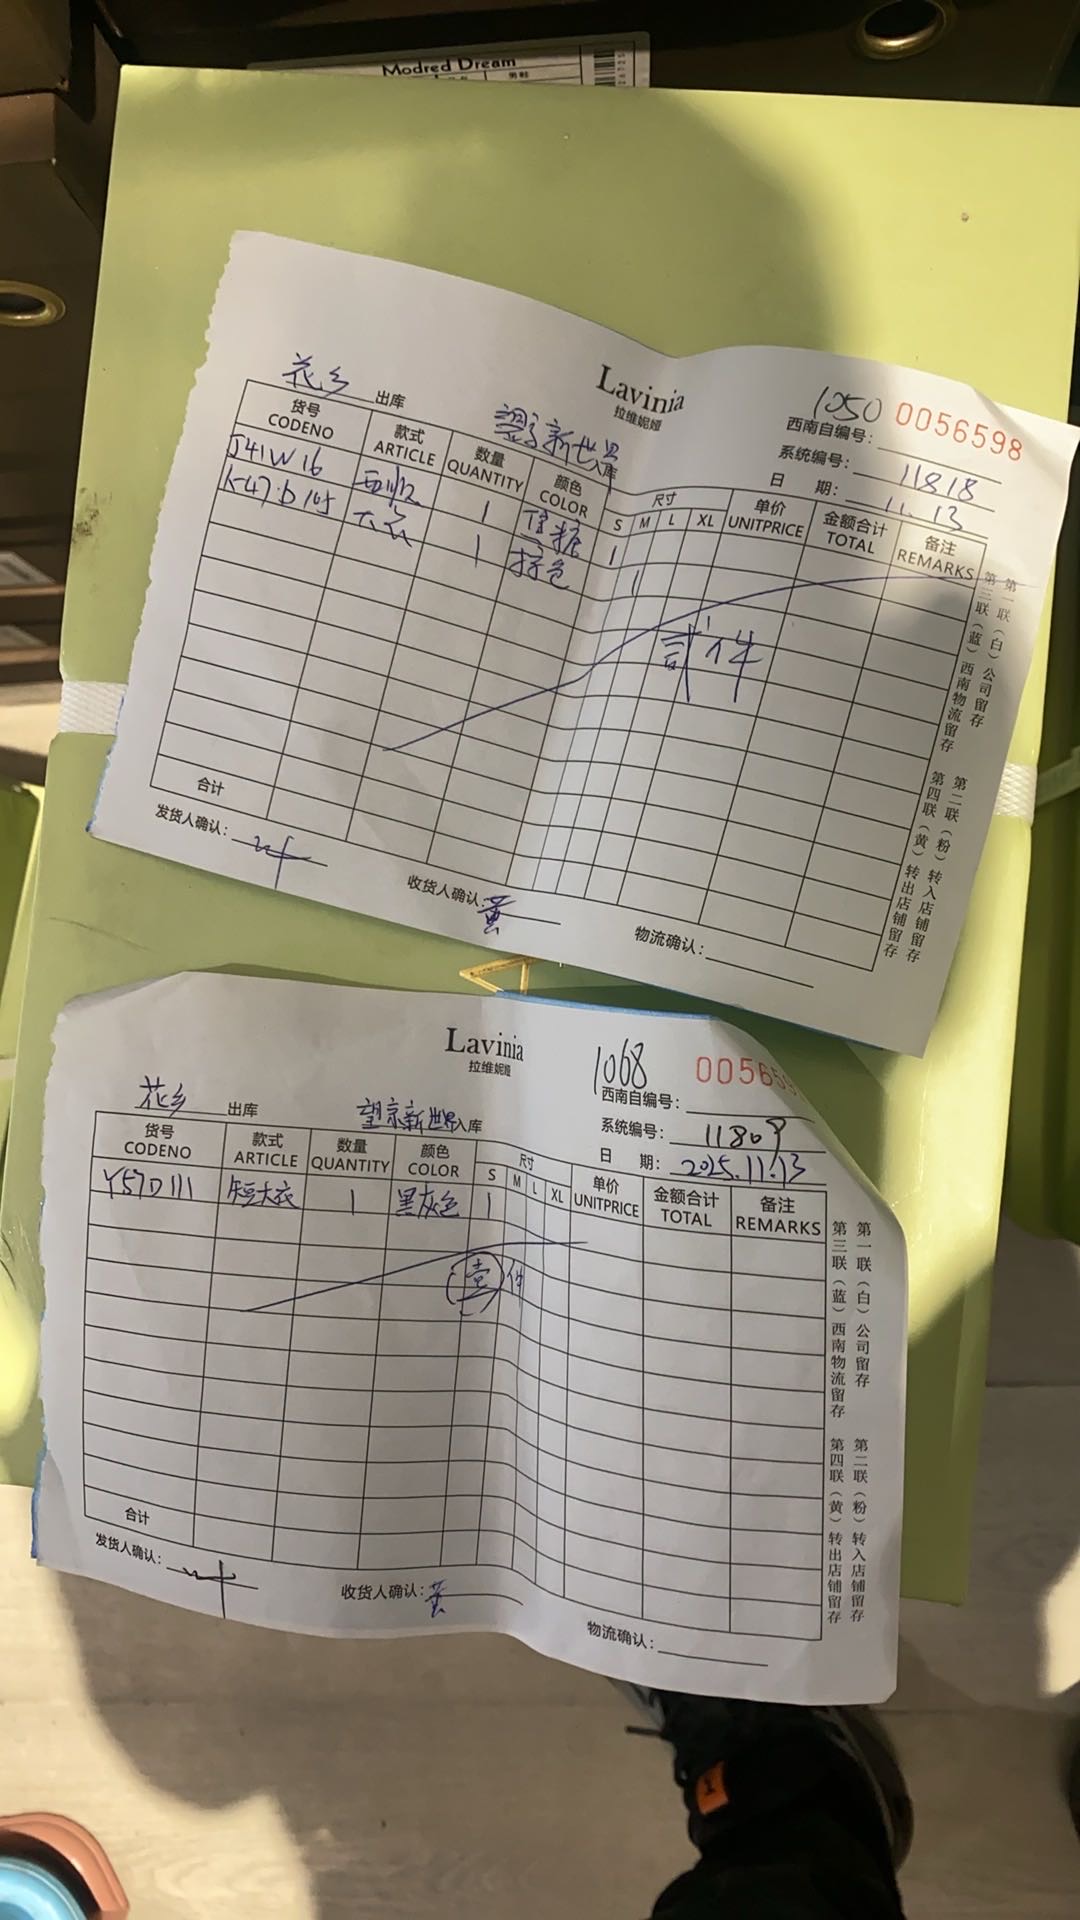 Modred Dream
男鞋
Lavinia
拉维妮娅
1050 0056598
花乡 出库
新世界 入库
西南自编号：
系统编号： 11818
日 期： 11.13
货号 款式 数量 颜色 尺寸 单价 金额合计 备注
CODENO ARTICLE QUANTITY COLOR S M L XL UNITPRICE TOTAL REMARKS
J41W16 西服 1 焦糖 1
大衣 1 棕色 1
贰件
合计
发货人确认：
收货人确认： 黄
物流确认：
第一联（白）公司留存 第二联（粉）转入店铺留存
第三联（蓝）西南物流留存 第四联（黄）转出店铺留存
Lavinia
拉维妮娅
1068 005659
花乡 出库
望京新世界 入库
西南自编号：
系统编号： 11809
日 期： 2025.11.13
货号 款式 数量 颜色 尺寸 单价 金额合计 备注
CODENO ARTICLE QUANTITY COLOR S M L XL UNITPRICE TOTAL REMARKS
Y57D111 短大衣 1 黑灰色 1
壹件
合计
发货人确认：
收货人确认： 黄
物流确认：
第一联（白）公司留存 第二联（粉）转入店铺留存
第三联（蓝）西南物流留存 第四联（黄）转出店铺留存